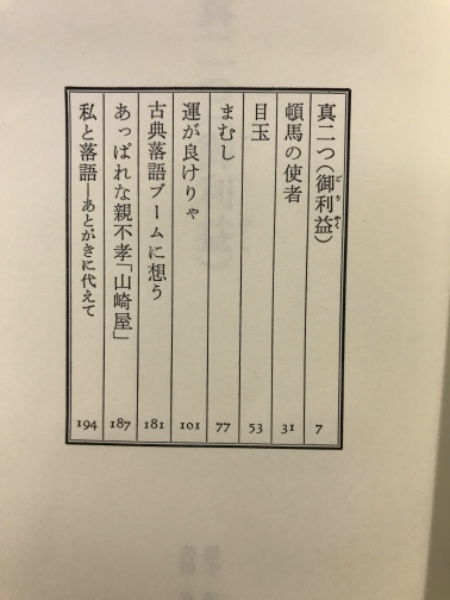 真二つ(御利益) 7
頓馬の使者 31
目玉 53
まむし 77
運が良けりゃ 101
古典落語ブームに想う 181
あっぱれな親不孝「山崎屋」 187
私と落語―あとがきに代えて 194